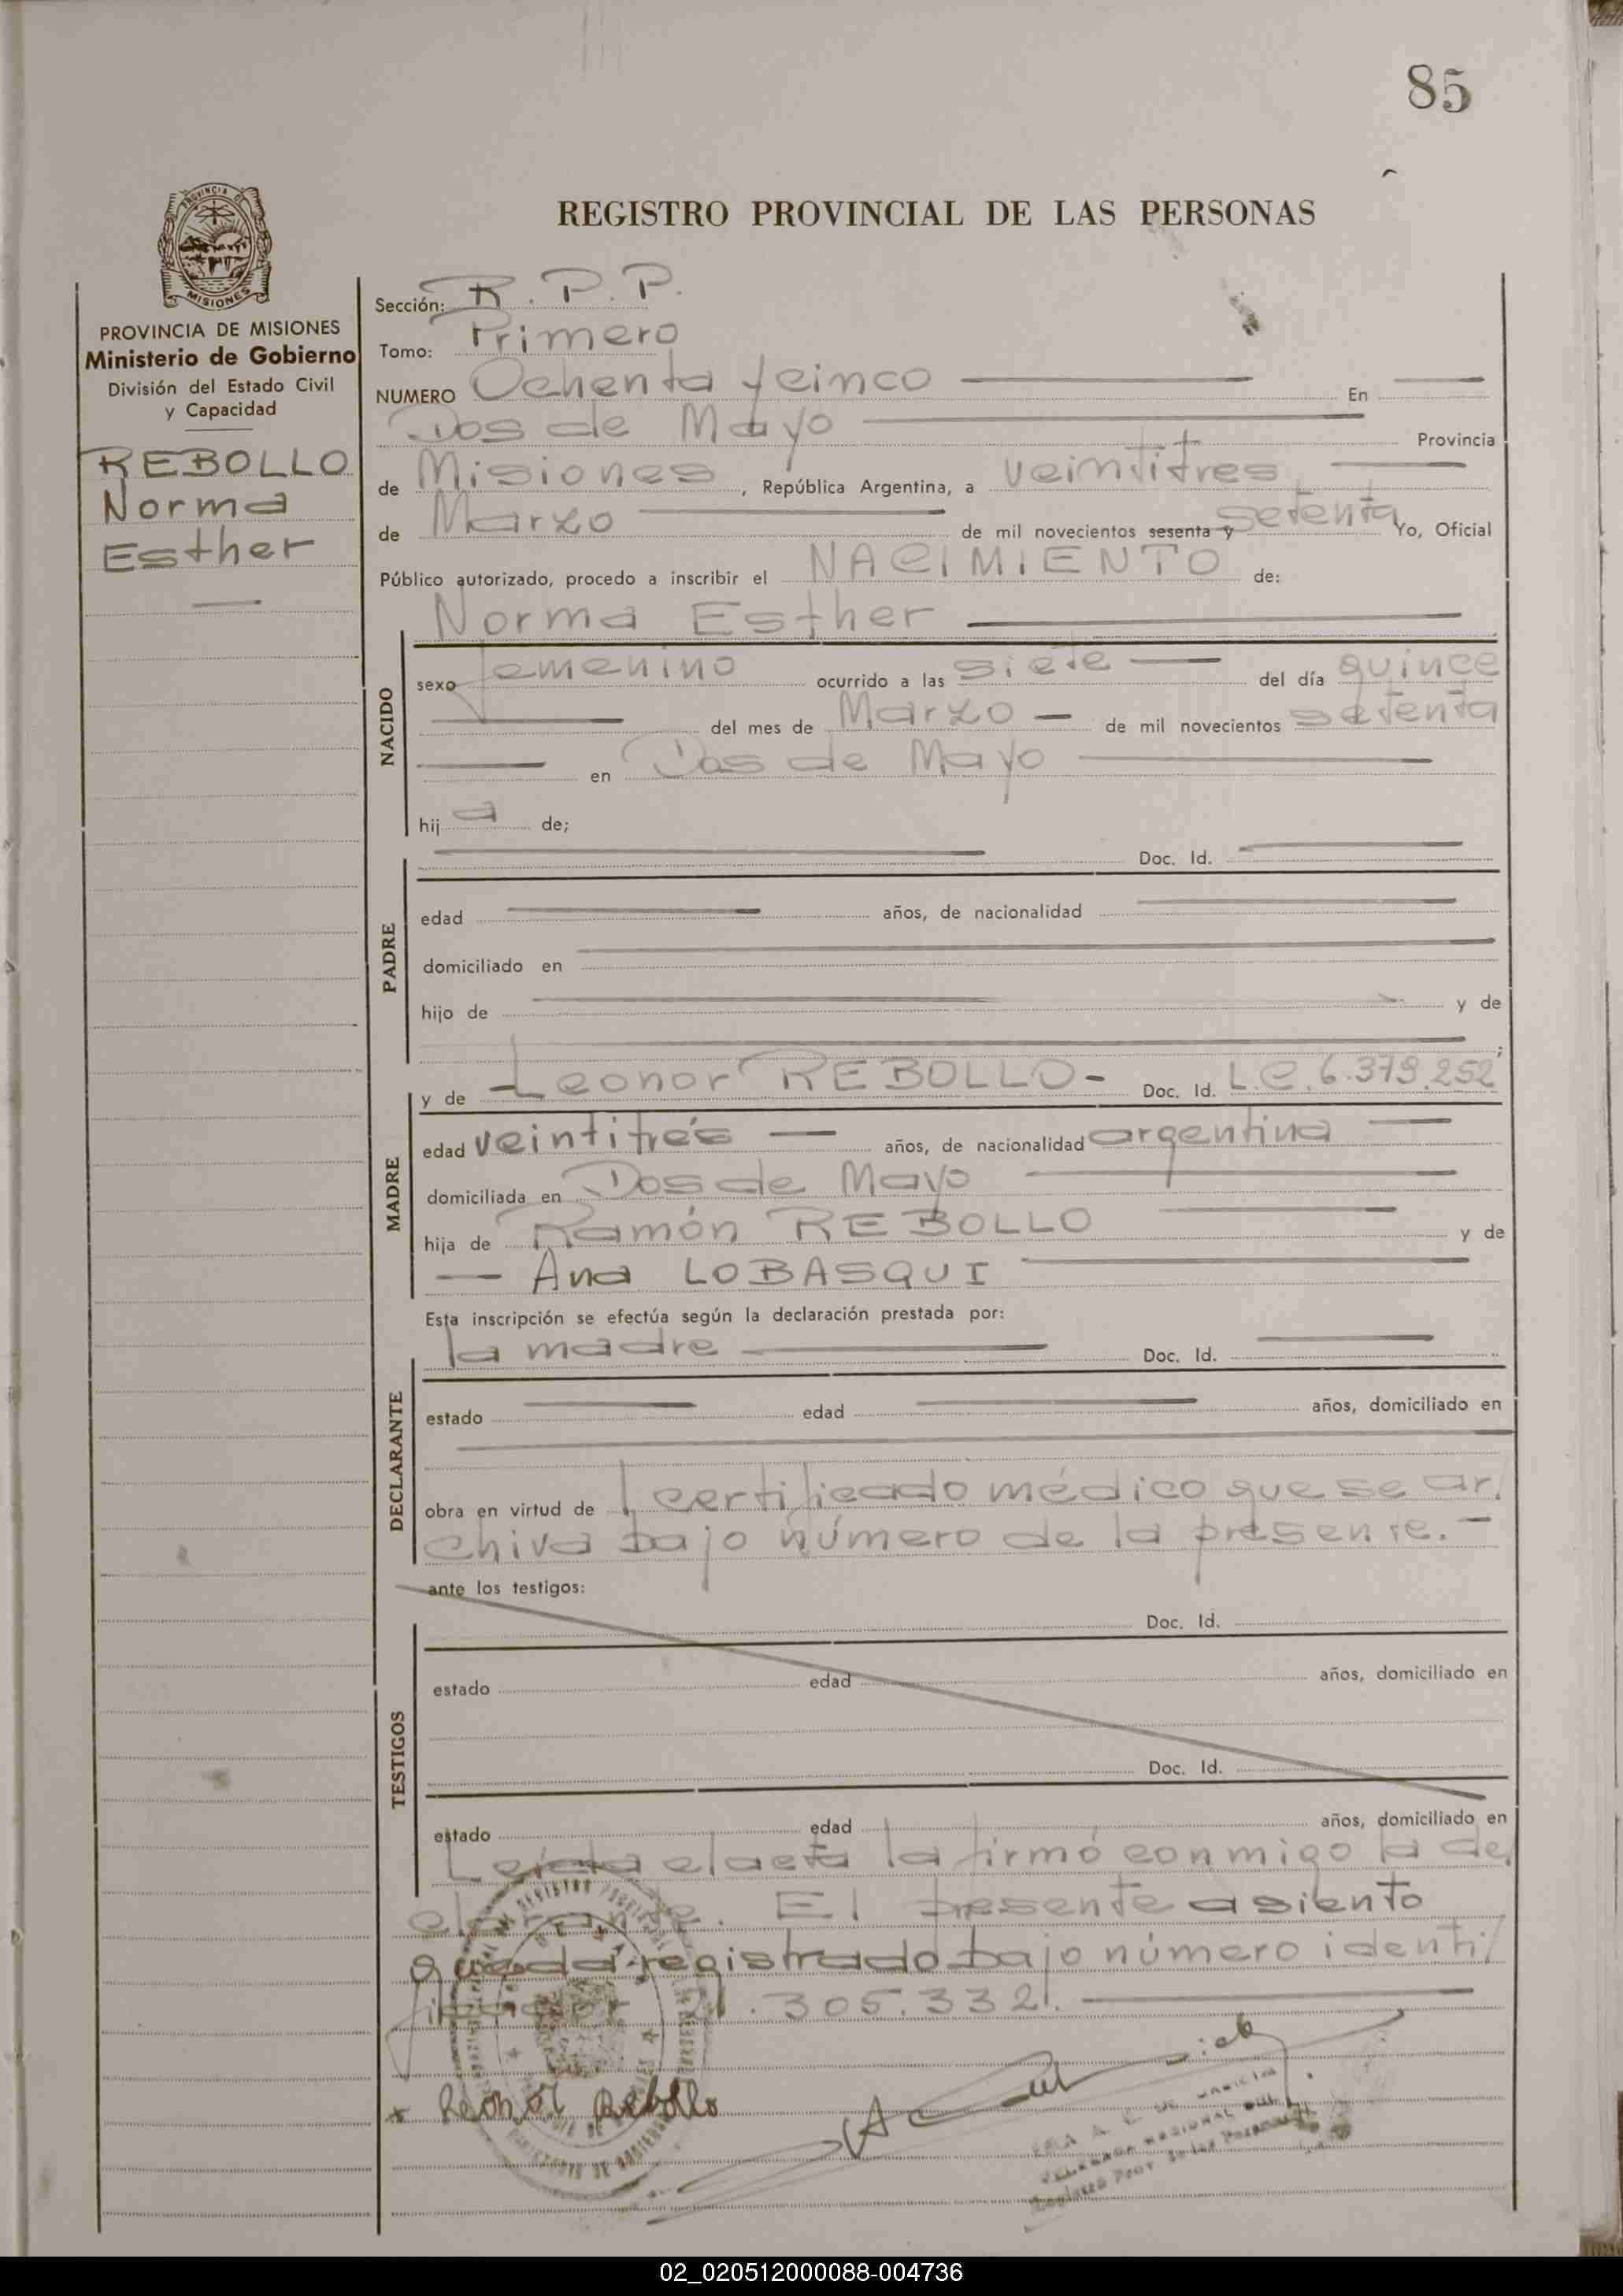 85
REGISTRO PROVINCIAL DE LAS PERSONAS
PROVINCIA DE MISIONES
PROVINCIA DE MISIONES
Ministerio de Gobierno
División del Estado Civil
y Capacidad
REBOLLO
Norma
Esther
Sección: R.P.P.
Tomo: Primero
NUMERO Ochenta y cinco En
Dos de Mayo Provincia
de Misiones, República Argentina, a veintitres
de Marzo de mil novecientos sesenta y setenta Yo, Oficial
Público autorizado, procedo a inscribir el NACIMIENTO de:
Norma Esther
NACIDO
sexo femenino ocurrido a las siete del día quince
del mes de Marzo de mil novecientos setenta
en Dos de Mayo
hij a de;
Doc. Id.
PADRE
edad años, de nacionalidad
domiciliado en
hijo de y de
;
MADRE
y de Leonor REBOLLO- Doc. Id. L.C. 6.379.252
edad veintitrés años, de nacionalidad argentina
domiciliada en Dos de Mayo
hija de Ramón REBOLLO y de
Ana LOBASQUI
Esta inscripción se efectúa según la declaración prestada por:
la madre Doc. Id.
DECLARANTE
estado edad años, domiciliado en
obra en virtud de certificado médico que se ar
chiva bajo número de la presente.-
ante los testigos:
Doc. Id.
TESTIGOS
estado edad años, domiciliado en
Doc. Id.
estado edad años, domiciliado en
Leída el acta la firmó conmigo la de
clarante. El presente asiento
queda registrado bajo número identi
ficador 21.305.332.
Leonor Rebollo
02_020512000088-004736